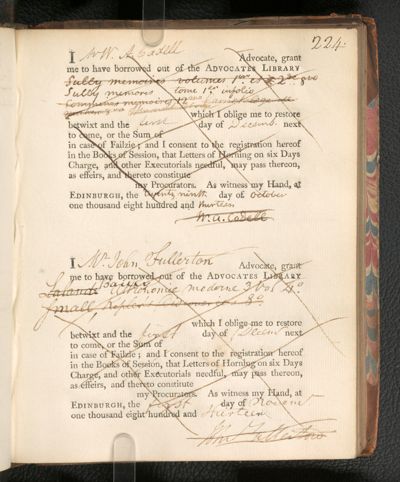 224.
I Mr W. A. Cadell Advocate, grant
me to have borrowed out of the ADVOCATES LIBRARY
Sully memoires volumes 1er et 2de 8vo
Sully memoirs tome 1er infolio
memoires
which I oblige me to restore
betwixt and the first day of Decemb. next
to come, or the Sum of
in case of Failzie; and I consent to the registration hereof
in the Books of Session, that Letters of Horning on six Days
Charge, and other Executorials needful, may pass thereon,
as effeirs, and thereto constitute
my Procurators. As witness my Hand, at
EDINBURGH, the twenty ninth day of October
one thousand eight hundred and thirteen
W. A. Cadell
I Mr John Fullerton Advocate, grant
me to have borrowed out of the ADVOCATES LIBRARY
Lalande Bailly Astronomie moderne 3 vol 4o.
Small 8o
which I oblige me to restore
betwixt and the first day of Decem next
to come, or the Sum of
in case of Failzie; and I consent to the registration hereof
in the Books of Session, that Letters of Horning on six Days
Charge, and other Executorials needful, may pass thereon,
as effeirs, and thereto constitute
my Procurators. As witness my Hand, at
EDINBURGH, the first day of Novemr
one thousand eight hundred and thirteen
Jn Fullerton